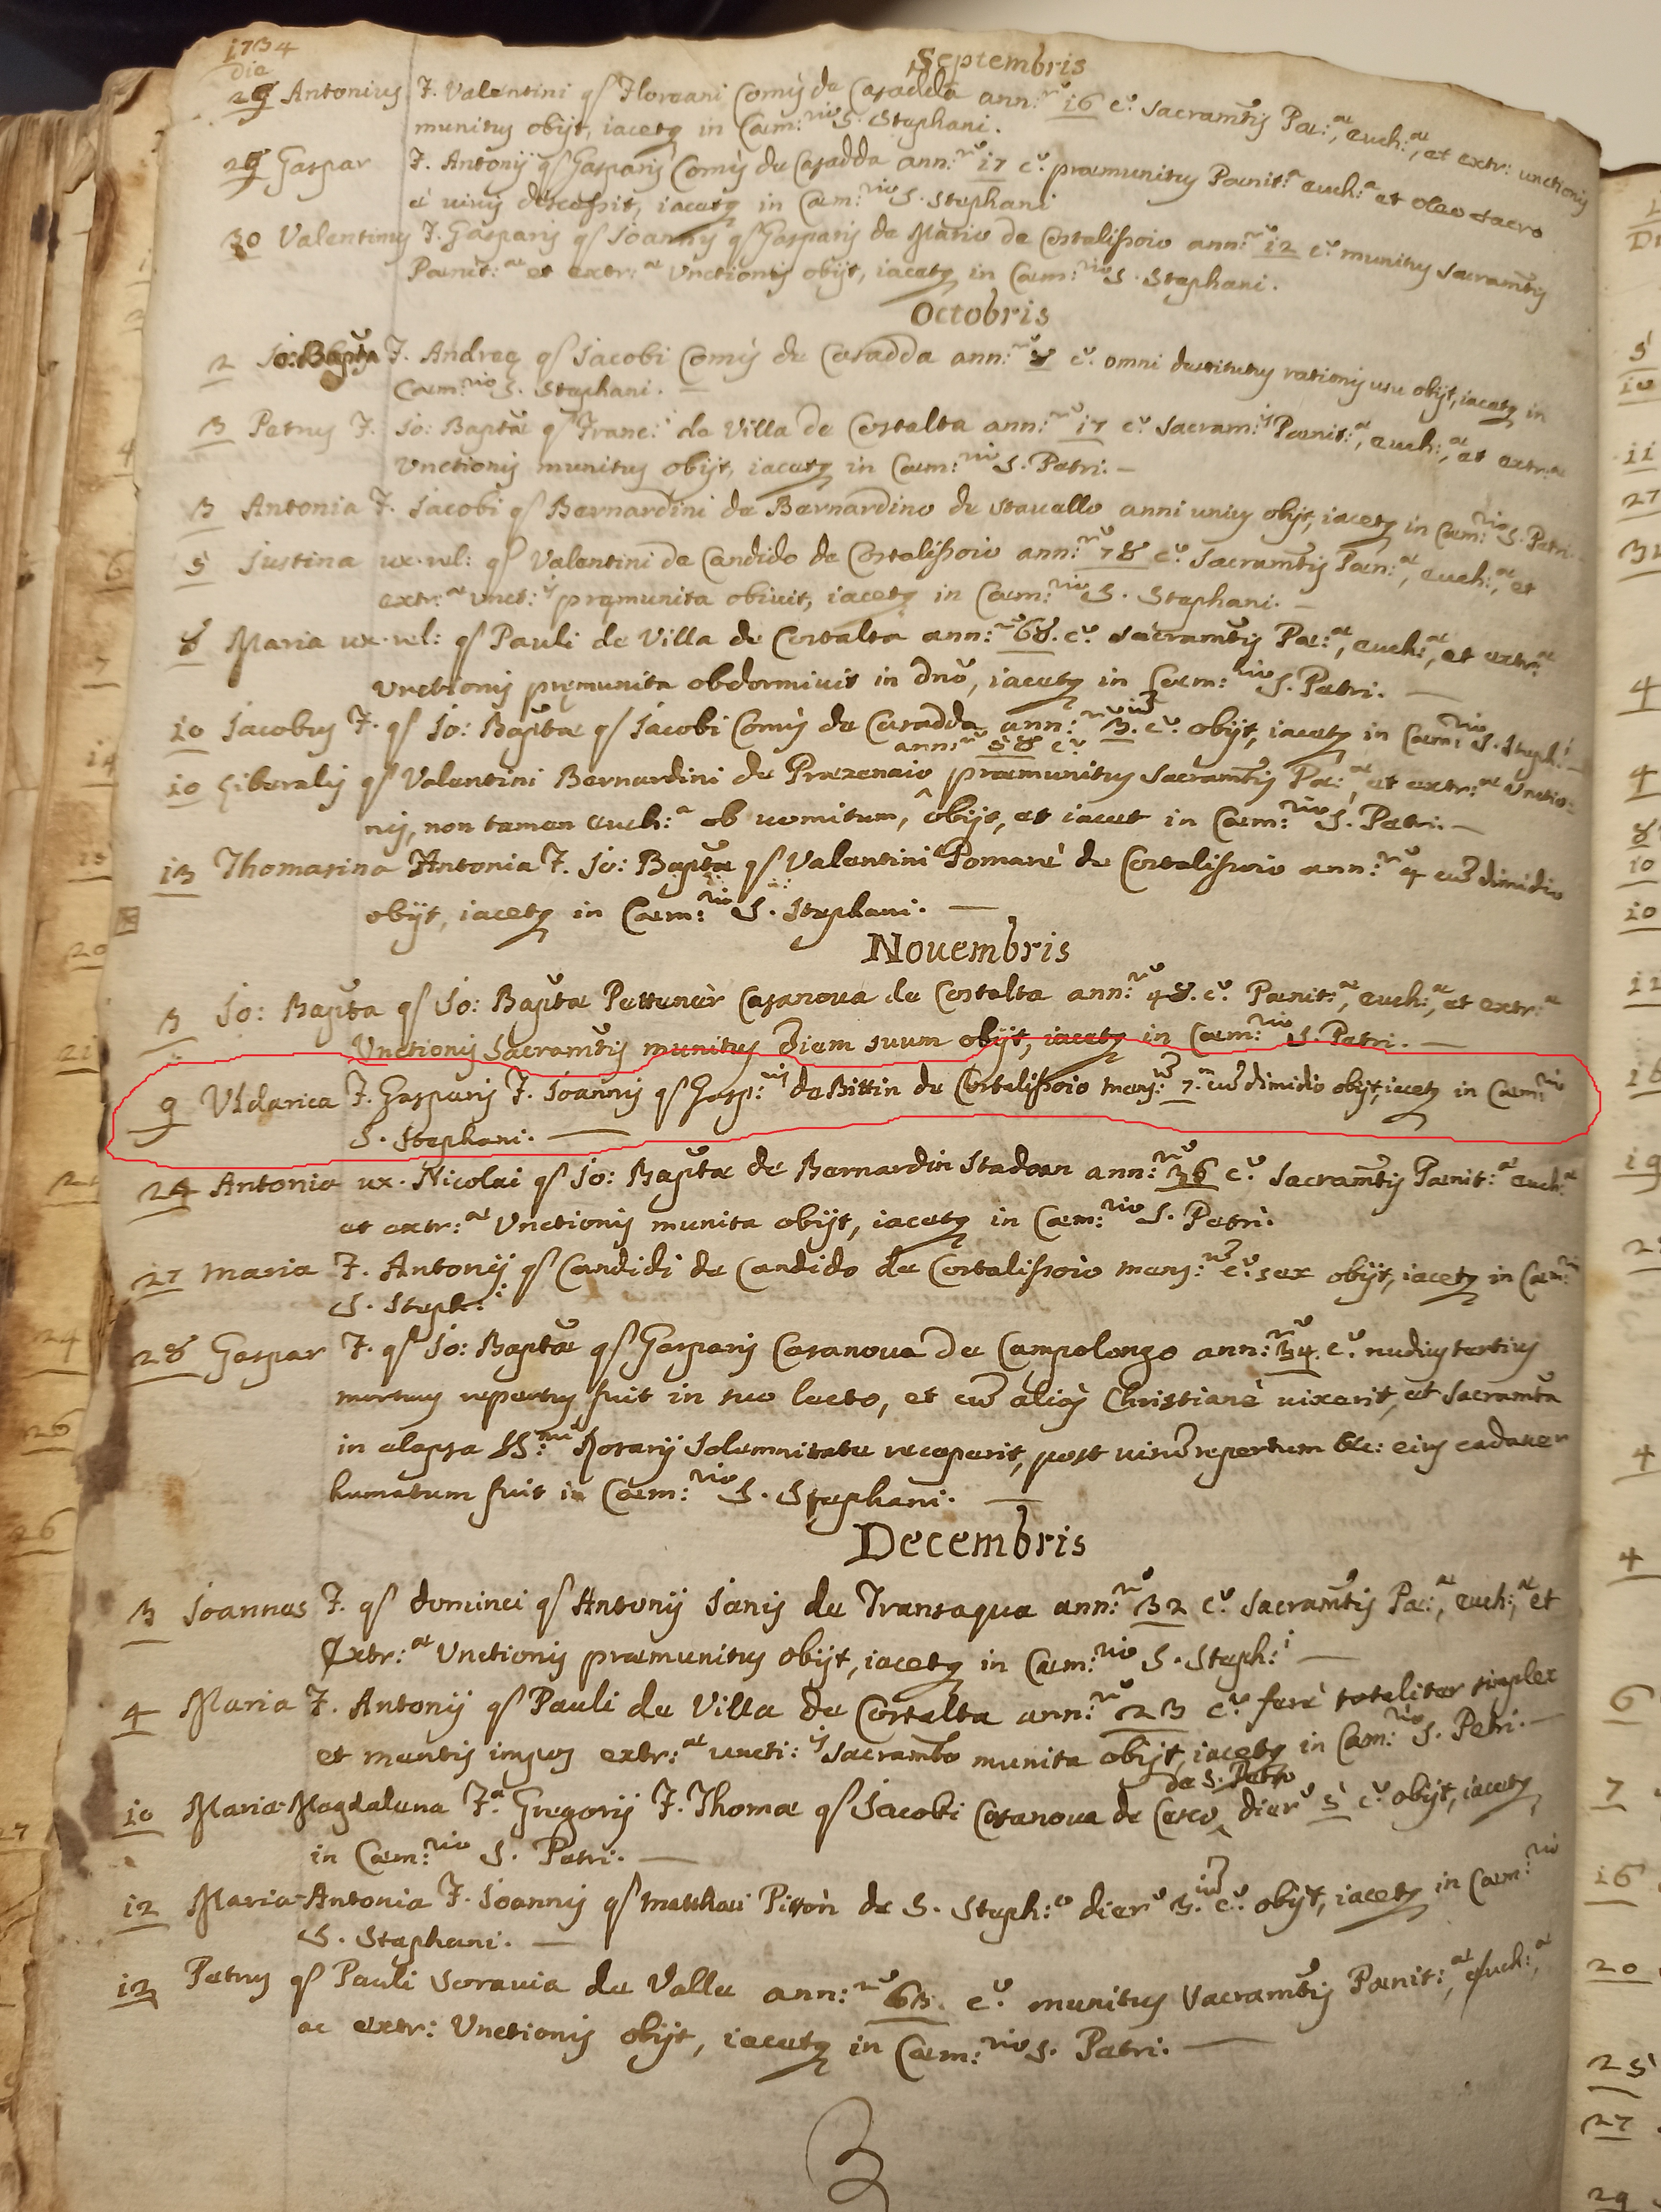 1734
Septembris
die
29 Antonius F. Valentini qs Floreani Comis de Casadda ann:ru 16 cu. Sacramtis Pae:ae, euch:ae, et extr: unctionis
munitus obijt, iacetq in Caem:rio S. Stephani.
29 Gaspar F. Antonij qs Gasparis Comis de Casadda ann:ru 17 cu. praemunitus Paenit:a euch:a et oleo sacro
è vivis discessit, iacetq in Caem:rio S. Stephani
30 Valentinus F. Gasparis qs Joannis qs Gasparis de Mario de Costalissoio ann:ru 12 cu. munitus sacramtis
Paenit:ae et extr:ae Unctionis obijt, iacetq in Caem:rio S. Stephani.
Octobris
2 Jo: Bapta F. Andreę qs Jacobi Comis de Casadda ann:ru 8 cu. omni destitutus rationis usu obijt, iacetq in
Caem:rio S. Stephani.
3 Petrus F. Jo: Baptae qs Franc:i de Villa de Costalta ann:ru 17 cu. Sacram:is Paenit:ae, euch:ae, et extr:ae
Unctionis munitus obijt, iacetq in Caem:rio S. Petri.
3 Antonia F. Jacobi qs Bernardini de Bernardino de stavello anni unius obijt, iacetq in Caem:rio S. Petri.
5 Justina ux. rel: qs Valentini de Candido de Costalissoio ann:ru 78 cu. Sacramtis Paen:ae, euch:ae, et
extr:ae unct:is pręmunita obivit, iacetq in Caem:rio S. Stephani.
8 Maria ux. rel: qs Pauli de Villa de Costalta ann:ru 68. cu. Sacramtis Pae:ae, euch:ae, et extr:ae
Unctionis pręmunita obdormivit in dno, iacetq in Caem:rio S. Petri.
10 Jacobus F. qs Jo: Baptae qs Jacobi Comis de Casadda ann:ru 3.um cu. obijt, iacetq in Caem:rio S. Steph:i
annru 58 cu.
10 Liberalis qs Valentini Bernardini de Prezenaio praemunitus Sacramtis Pae:ae, et extr:ae Unctio=
nis, non tamen euch:a ob vomitum, ^ obijt, et iacet in Caem:rio S. Petri.
13 Thomasina Antonia F. Jo: Baptae qs Valentini Pomarè de Costalissoio ann:ru 4 cum dimidio
obijt, iacetq in Caem:rio S. Stephani.
Novembris
3 Jo: Bapta qs Jo: Baptae Pettenèr Casanova de Costalta ann:ru 48. cu. Paenit:ae, euch:ae, et extr:ae
Unctionis Sacramtis munitus diem suum obijt, iacetq in Caem:rio S. Petri.
9 Uldarica F. Gasparis F. Joannis qs Gasp:ris de Bittin de Costalissoio mens:um 7.m cum dimidio obijt, iacetq in Caem:rio
S. Stephani.
24 Antonia ux. Nicolai qs Jo: Baptae de Bernardin Stadoan ann:ru 36 cu. Sacramtis Paenit:ae euch:ae
et extr:ae Unctionis munita obijt, iacetq in Caem:rio S. Petri.
27 Maria F. Antonij qs Candidi de Candido de Costalissoio mens:um cu. sex obijt, iacetq in Caem:rio
S. Steph:i
28 Gaspar F. qs Jo: Baptae qs Gasparis Casanova de Campolongo ann:ru 34. cu. nudius tertius
mortuus repertus fuit in suo lecto, et cum aliqs Christianè vixerit, et Sacramta
in elapsa SS:mi Rosarij Solemnitate receperit, post visum repertum &c: eius cadaver
humatum fuit in Caem:rio S. Stephani.
Decembris
3 Joannes F. qs dominci qs Antonij Janis de Transaqua ann:ru 32 cu. Sacramtis Pae:ae, euch:ae, et
Extr:ae Unctionis praemunitus obijt, iacetq in Caem:rio S. Steph:i
4 Maria F. Antonij qs Pauli de Villa de Costalta ann:ru 23 cu. ferè totaliter simplex
et mentis impos extr:ae uncti:is Sacramto munita obijt, iacetq in Caem:rio S. Petri.
de S. Petro
10 Maria Magdalena F.a Gregorij F. Thomae qs Jacobi Casanova de Casco ^ dieru 5 cu. obijt, iacetq
in Caem:rio S. Petri.
12 Maria-Antonia F. Joannis qs Matthaei Pitton de S. Steph:o dieru 3.um cu. obijt, iacetq in Caem:rio
S. Stephani.
12 Petrus qs Pauli Soravia de Valle ann:ru 63. cu. munitus Sacramtis Paenit:ae, euch:ae,
ac extr: Unctionis obijt, iacetq in Caem:rio S. Petri.